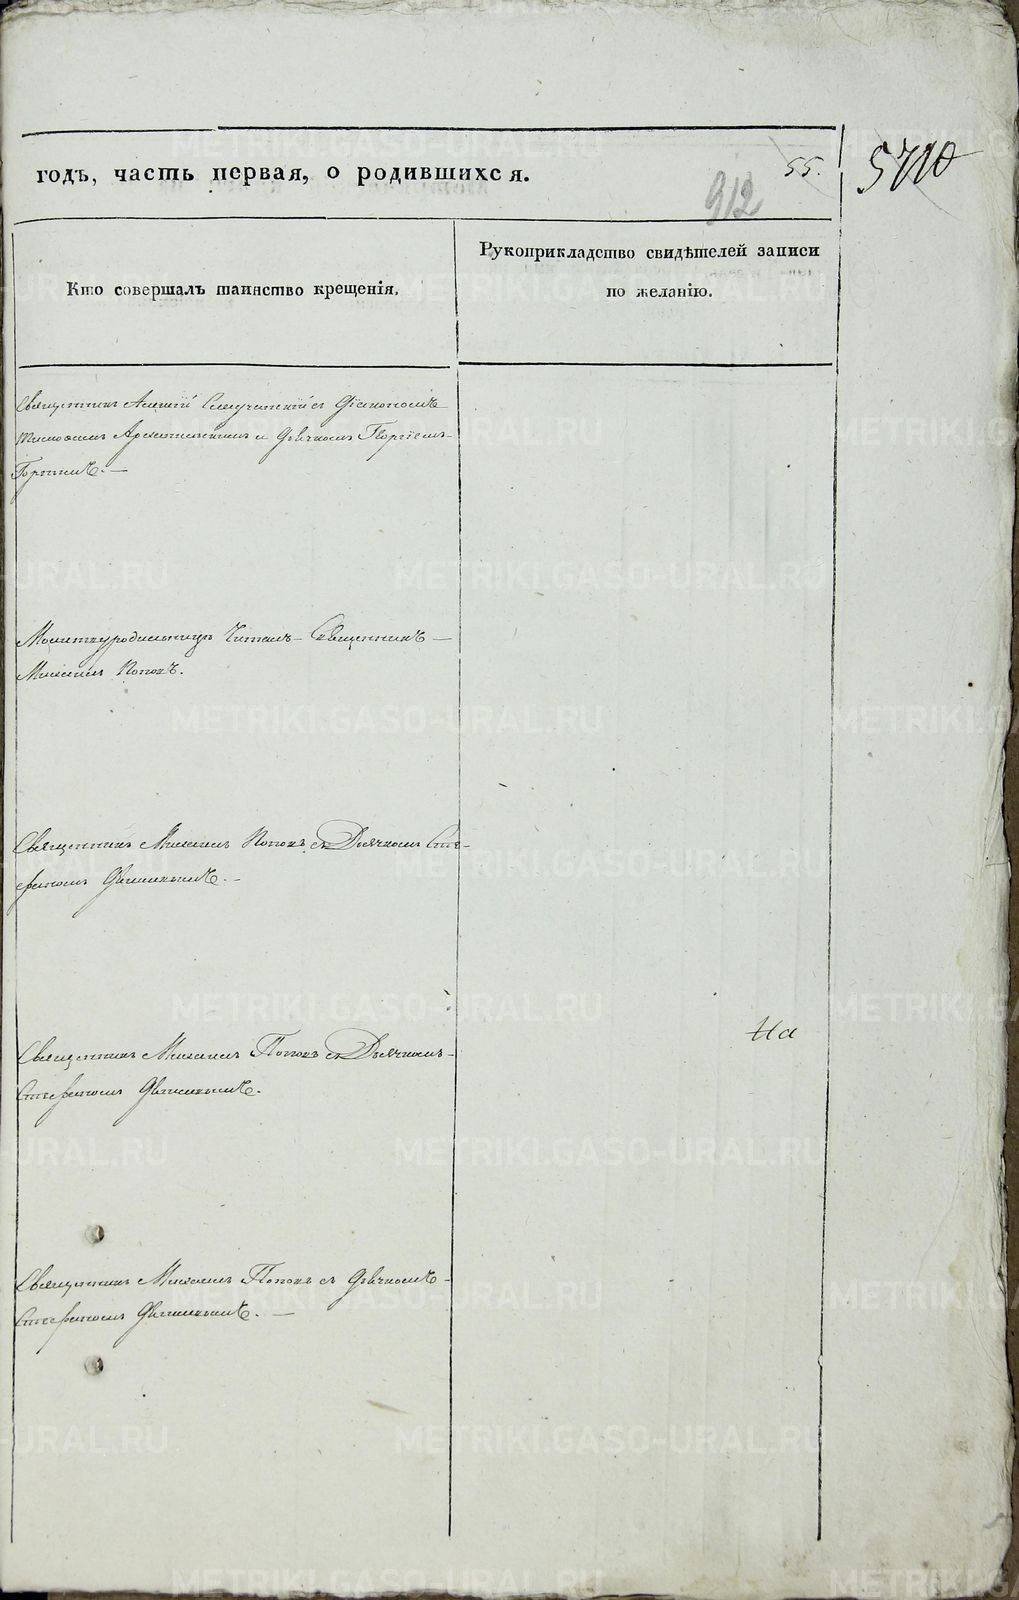 годъ, часть первая, о родившихся.
55.
912
Кто совершалъ таинство крещенія.
Рукоприкладство свидѣтелей записи
по желанію.
Священникъ Алексій с Діакономъ
и Дьячкомъ Георгіемъ
Молитву родильницѣ Читалъ Священникъ
Михаилъ Поповъ.
Священникъ Михаилъ Поповъ съ Дьячкомъ Сте-
фаномъ
Священникъ Михаилъ Поповъ съ Дьячкомъ
Стефаномъ
На
Священникъ Михаилъ Поповъ съ Дьячкомъ
Стефаномъ
METRIKI.GASO-URAL.RU